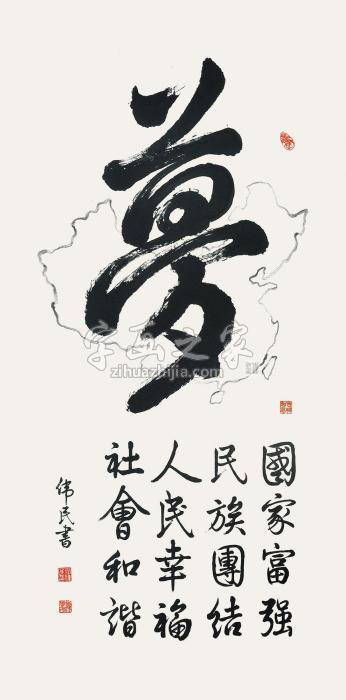 夢
國家富强
民族團结
人民幸福
社會和諧
伟民書
字画之家
zihuazhijia.com